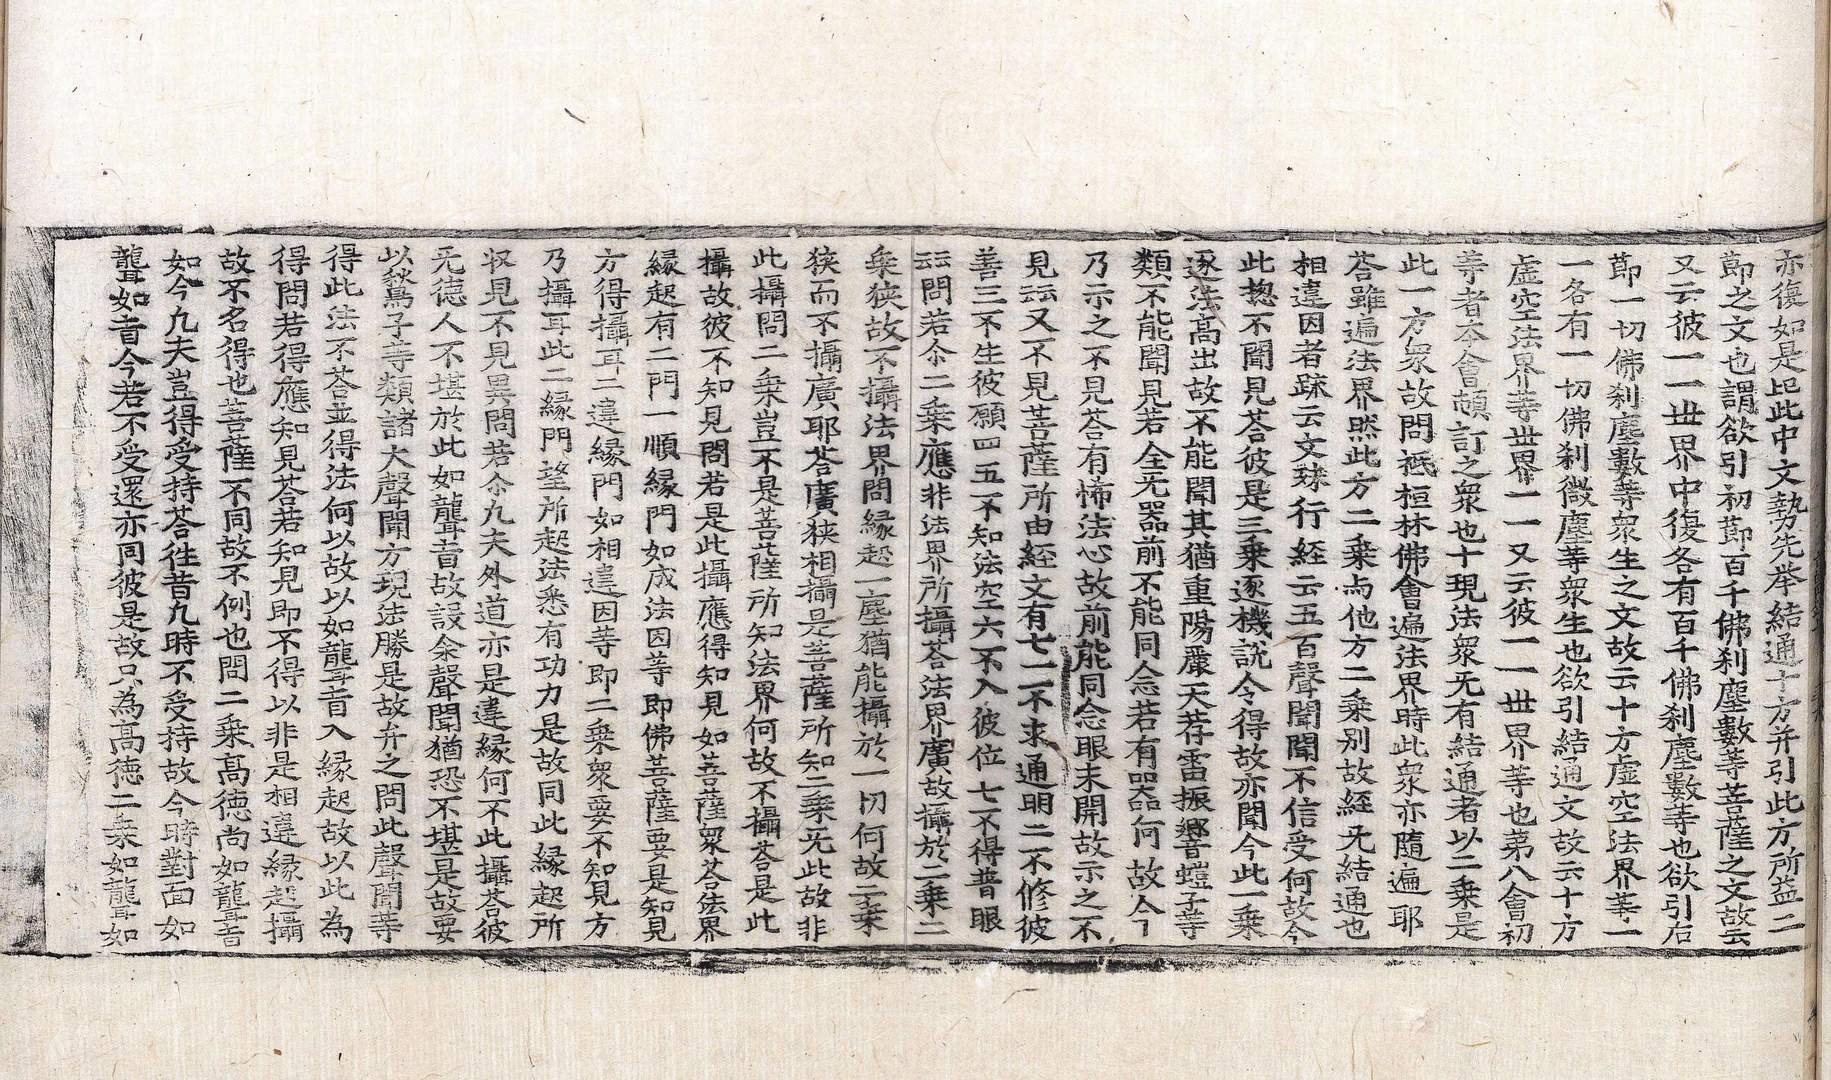 亦復如是昆此中文勢先举結通十方并引此方所益二
節之文也謂欲引初節百千佛刹塵數等菩薩之文故云
又云彼一一世界中復各有百千佛刹塵數等也欲引右
節一切佛刹塵數等衆生之文故云十方虛空法界等一
一各有一切佛刹微塵等衆生也欲引結通文故云十方
虛空法界等世界一一又云彼一一世界等也苐八會初
等者本會頓訂之衆也十現法衆旡有結通者以二乗是
此一方衆故問祇桓林佛會遍法界時此衆亦隨遍耶
荅雖遍法界然此方二乗与他方二乗别故経旡結通也
相違因者䟽云文殊行経云五百聲聞聞不信受何故今
此揔不聞見荅彼是三乗逐機說令得故亦聞今此一乗
逐法髙出故不能聞其猶重陽䴡天荐雷振響螘子等
類不能聞見若全旡器前不能同念若有器何故今
乃示之不見荅有怖法心故前能同念眼未開故示之不
見云云又不見菩薩所由経文有七一不求通明二不修彼
善三不生彼願四五不知法空六不入彼位七不得普眼
云云問若尒二乗應非法界所攝荅法界廣故攝於二乗二
乗狹故不攝法界問縁起一塵猶能攝於一切何故二乗
狹而不攝廣耶荅廣狹相攝是菩薩所知二乗旡此故非
此攝問二乗豈不是菩薩所知法界何故不攝荅是此
攝故彼不知見問若是此攝應得知見如菩薩衆荅法界
縁起有二門一順縁門如成法因等即佛菩薩要是知見
方得攝耳二違縁門如相違因等即二乗衆要不知見方
乃攝耳此二縁門望所起法悉有功力是故同此縁起所
収見不見異問若尒九夫外道亦是違縁何不此攝荅彼
旡徳人不堪於此如聾盲故設余聲聞猶恐不堪是故要
以鶖子等類諸大聲聞方現法勝是故弃之問此聲聞等
得此法不荅並得法何以故以如聾盲入縁起故以此為
得問若得應知見荅若知見即不得以非是相違縁起攝
故不名得也菩薩不同故不例也問二乗髙徳尚如聾盲
如今九夫豈得受持荅徃昔九時不受持故今時對面如
聾如盲今若不受還亦同彼是故只為髙徳二乗如聾如